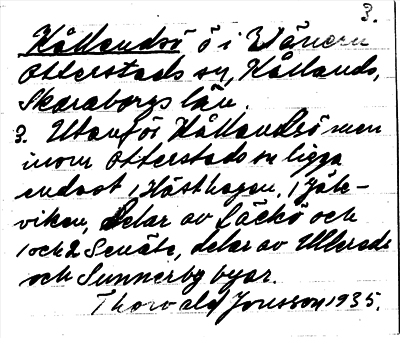 3.
Kållandsö ö i Vänern
Otterstads sn, Kållands,
Skaraborgs län.
3. Utanför Kållandsö men
inom Otterstads sn ligga
endast 1 Hästhagen, 1 Jäle-
viken, delar av Läckö och
1 och 2 Senäte, delar av Ullersde
och Sunnerby byar.
Thorvald Jonsson 1935.